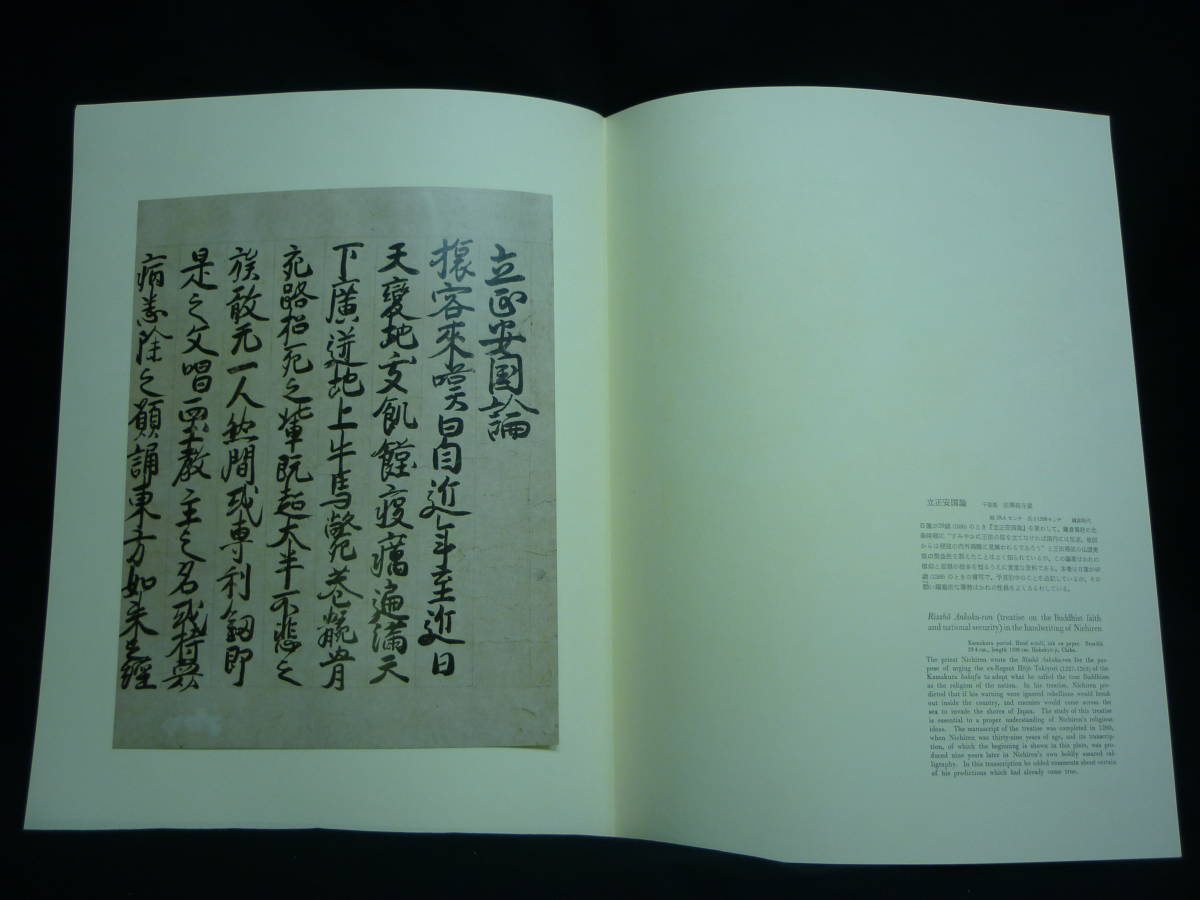 立正安国論
旅客來嘆曰自近年至近日
天變地夭飢饉疫癘遍滿天
下廣迸地上牛馬斃巷骸骨
充路招死之輩既超大半不悲之
族敢无一人然間或專利劔即
是之文唱西土教主之名或持衆
病悉除之願誦東方如来之經
立正安国論 千葉県 法華経寺蔵
鎌倉時代
Risshō Ankoku-ron (treatise on the Buddhist faith
and national security) in the handwriting of Nichiren
Kamakura period. Hand scroll, ink on paper. Breadth
29.4 cm., length 1598 cm. Hokekyō-ji, Chiba.
The priest Nichiren wrote the Risshō Ankoku-ron for the pur-
pose of urging the ex-Regent Hōjō Tokiyori (1227-1263) of the
Kamakura bakufu to adopt what he called the true Buddhism
as the religion of the nation. In his treatise, Nichiren pre-
dicted that if his warning were ignored rebellions would break
out inside the country, and enemies would come across the
sea to invade the shores of Japan. The study of this treatise
is essential to a proper understanding of Nichiren's religious
ideas. The manuscript of the treatise was completed in 1260,
when Nichiren was thirty-nine years of age, and its transcrip-
tion, of which the beginning is shown in this plate, was pro-
duced nine years later in Nichiren's own boldly assured cal-
ligraphy. In this transcription he added comments about certain
of his predictions which had already come true.